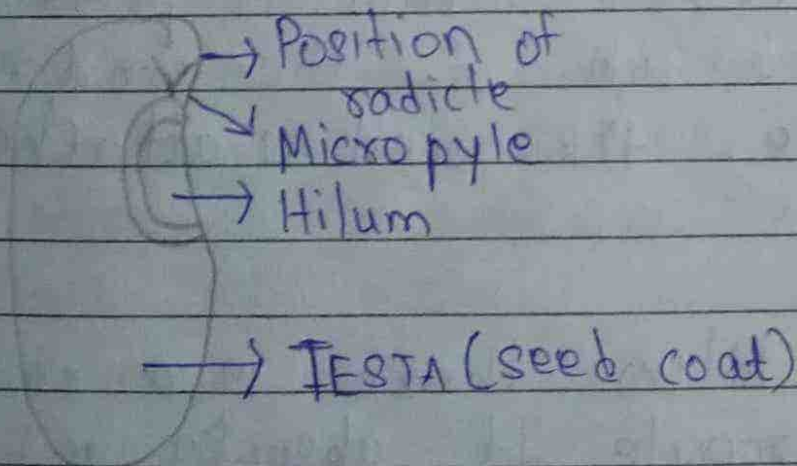 Position of
radicle
Micropyle
Hilum
TESTA (seed coat)